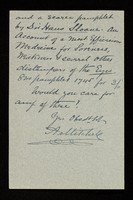 and a scarce pamphlet
by Sir Hans Sloane. An
Account of a most Efficacious
Medicine for Soreness,
Weakness & several other
distempers of the Eyes
8vo pamphlet 1745 for 2/-
Would you care for
any of these?
Yr Obedt St,